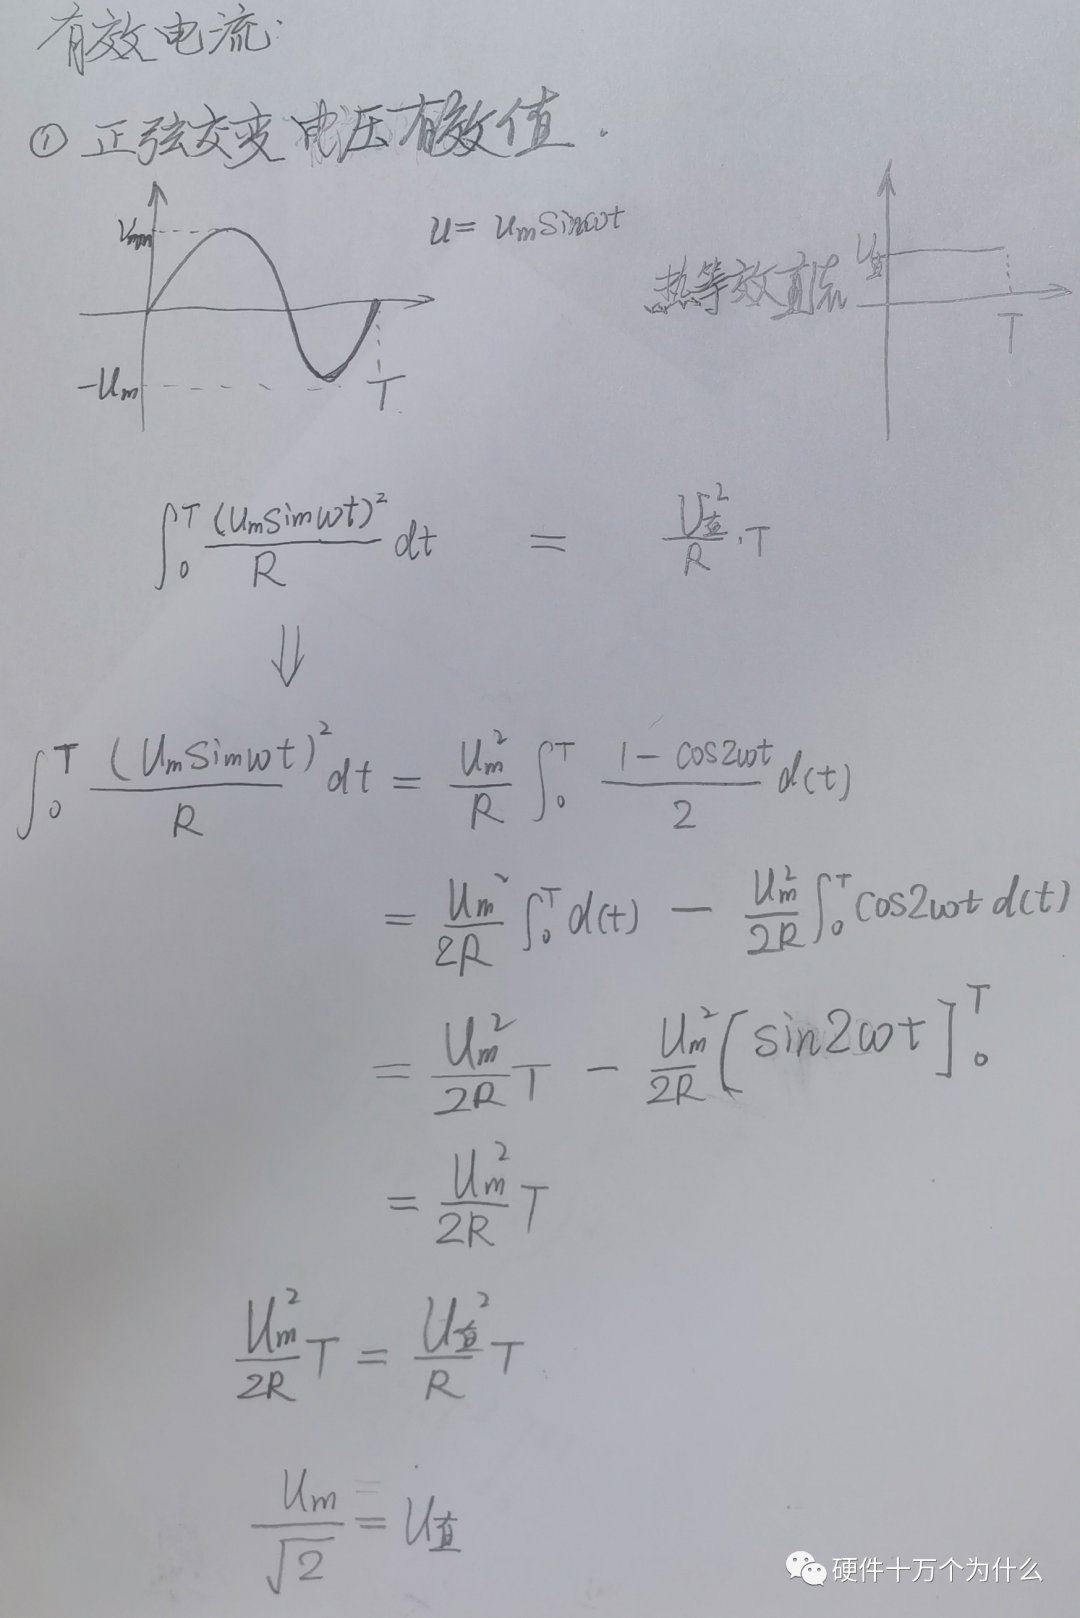 有效电流:
① 正弦交变电压有效值.
Vmm
u = Um sinωt
U直
热等效直流
T
-Um
T
∫₀ᵀ (Um sinωt)²/R dt = U直²/R · T
⇓
∫₀ᵀ (Um sinωt)²/R dt = Um²/R ∫₀ᵀ (1-cos2ωt)/2 d(t)
= Um²/2R ∫₀ᵀ d(t) - Um²/2R ∫₀ᵀ cos2ωt d(t)
= Um²/2R T - Um²/2R [sin2ωt]₀ᵀ
= Um²/2R T
Um²/2R T = U直²/R T
Um/√2 = U直
硬件十万个为什么